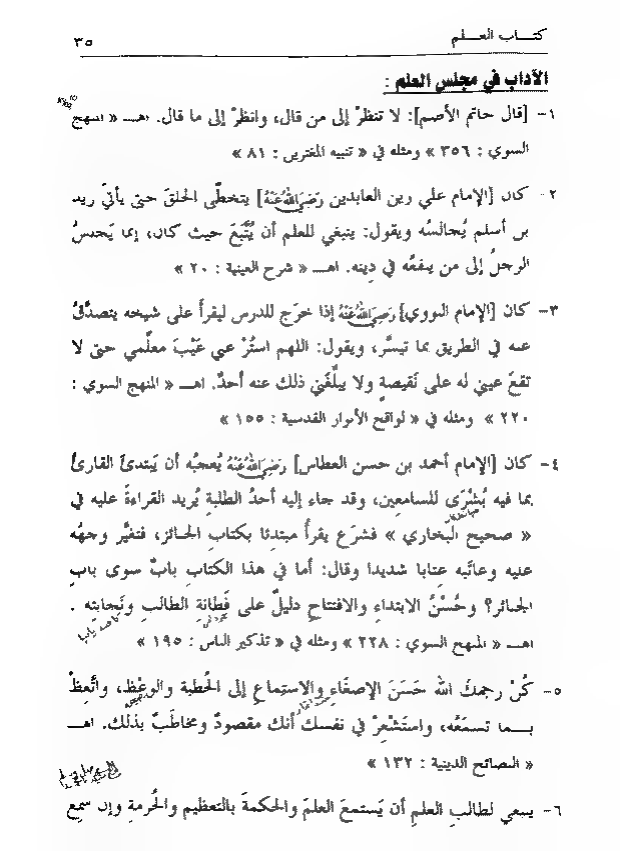 كتــاب العــلم
٣٥
الآداب في مجلس العلم :
١- [قال حاتم الأصم]: لا تنظرْ إلى من قال، وانظرْ إلى ما قال. اهـ « المنهج
السوي : ٣٥٦ » ومثله في « تنبيه المغترين : ٨١ »
٢- كان [الإمام علي زين العابدين رَضِيَ اللهُ عَنْهُ] يتخطّى الحلقَ حتى يأتيَ زيد
بن أسلم يُجالسُه ويقول: ينبغي للعلم أن يُتَّبَعَ حيث كان، إنما يَجلسُ
الرجلُ إلى من ينفعُه في دِينه. اهـ « شرح العينية : ٢٠ »
٣- كان [الإمام النووي] رَضِيَ اللهُ عَنْهُ إذا خرَج للدرس ليقرأَ على شيخه يتصدَّقُ
عنه في الطريق بما تيسَّر، ويقول: اللهم استُرْ عني عَيْبَ معلِّمي حتى لا
تقعَ عيني له على نَقيصةٍ ولا يبلِّغَني ذلك عنه أحدٌ. اهـ « المنهج السوي :
٢٢٠ » ومثله في « لواقح الأنوار القدسية : ١٥٥ »
٤- كان [الإمام أحمد بن حسن العطاس] رَضِيَ اللهُ عَنْهُ يُعجبُه أن يَبتدئَ القارئُ
بما فيه بُشْرَى للسامعين، وقد جاء إليه أحدُ الطلبةِ يُريد القراءةَ عليه في
« صحيح البخاري » فشرَع يقرأُ مبتدِئا بكتابِ الجنائز، فتغيَّر وجهُه
عليه وعاتَبه عتابا شديدا وقال: أما في هذا الكتابِ بابٌ سوى بابِ
الجنائز؟ وحُسْنُ الابتداءِ والافتتاحِ دليلٌ على فَطانةِ الطالبِ ونَجابتِه .
اهـ « المنهج السوي : ٢٢٨ » ومثله في « تذكير الناس : ١٩٥ »
٥- كُنْ رحِمكَ الله حَسَنَ الإصغَاءِ والاستِماعِ إلى الخُطبة والوعْظِ، واتَّعِظْ
بــما تسمَعُه، واستَشْعِرْ في نفسك أنك مقصودٌ ومخاطَبٌ بذلك. اهـ
« النصائح الدينية : ١٣٢ »
٦- ينبغي لطالبِ العلمِ أن يَستمعَ العلمَ والحكمةَ بالتعظيمِ والحُرمةِ وإن سَمِعَ